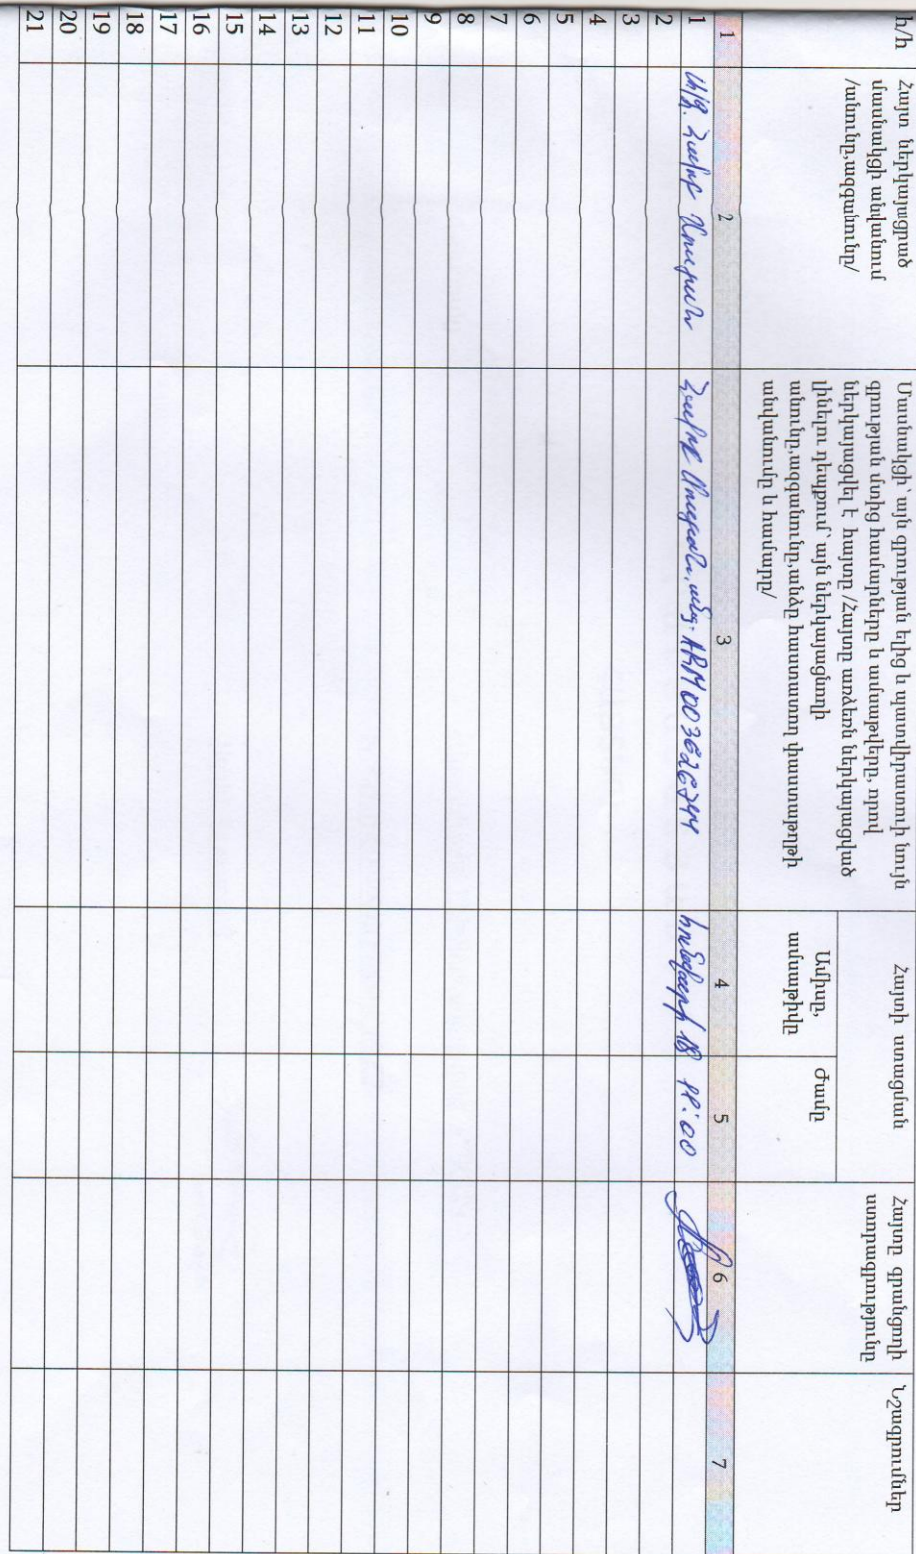 հ/հ
Հայտ ներկայացրած
մասնակցի անվանում
/անունը,ազգանունը/
Մասնակցի՝ այն գրության ելից և պատվիրատուի նույն
գրության մտից համարները և ամսաթվերը. որով
ներկայացվել է հայտը /Հայտը առձեռն ներկայացված
լինելու դեպքում՝ այն ներկայացնողի
անունը,ազգանունը,անձը հաստատող փաստաթղթի
անվանումը և համարը/
Հայտի ստացման
Ամիսը,
ամսաթիվը
Ժամը
Հայտը գրանցողի
ստորագրությունը
Նշագրումներ
1 2 3 4 5 6 7
1 Ա/Ձ. Հակոբ Հակոբ ARM003626744 հունվարի 18 11:00
2
3
4
5
6
7
8
9
10
11
12
13
14
15
16
17
18
19
20
21